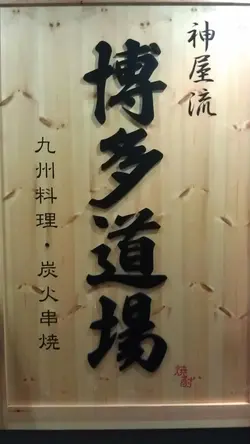 神屋流
博多道場
九州料理・炭火串焼